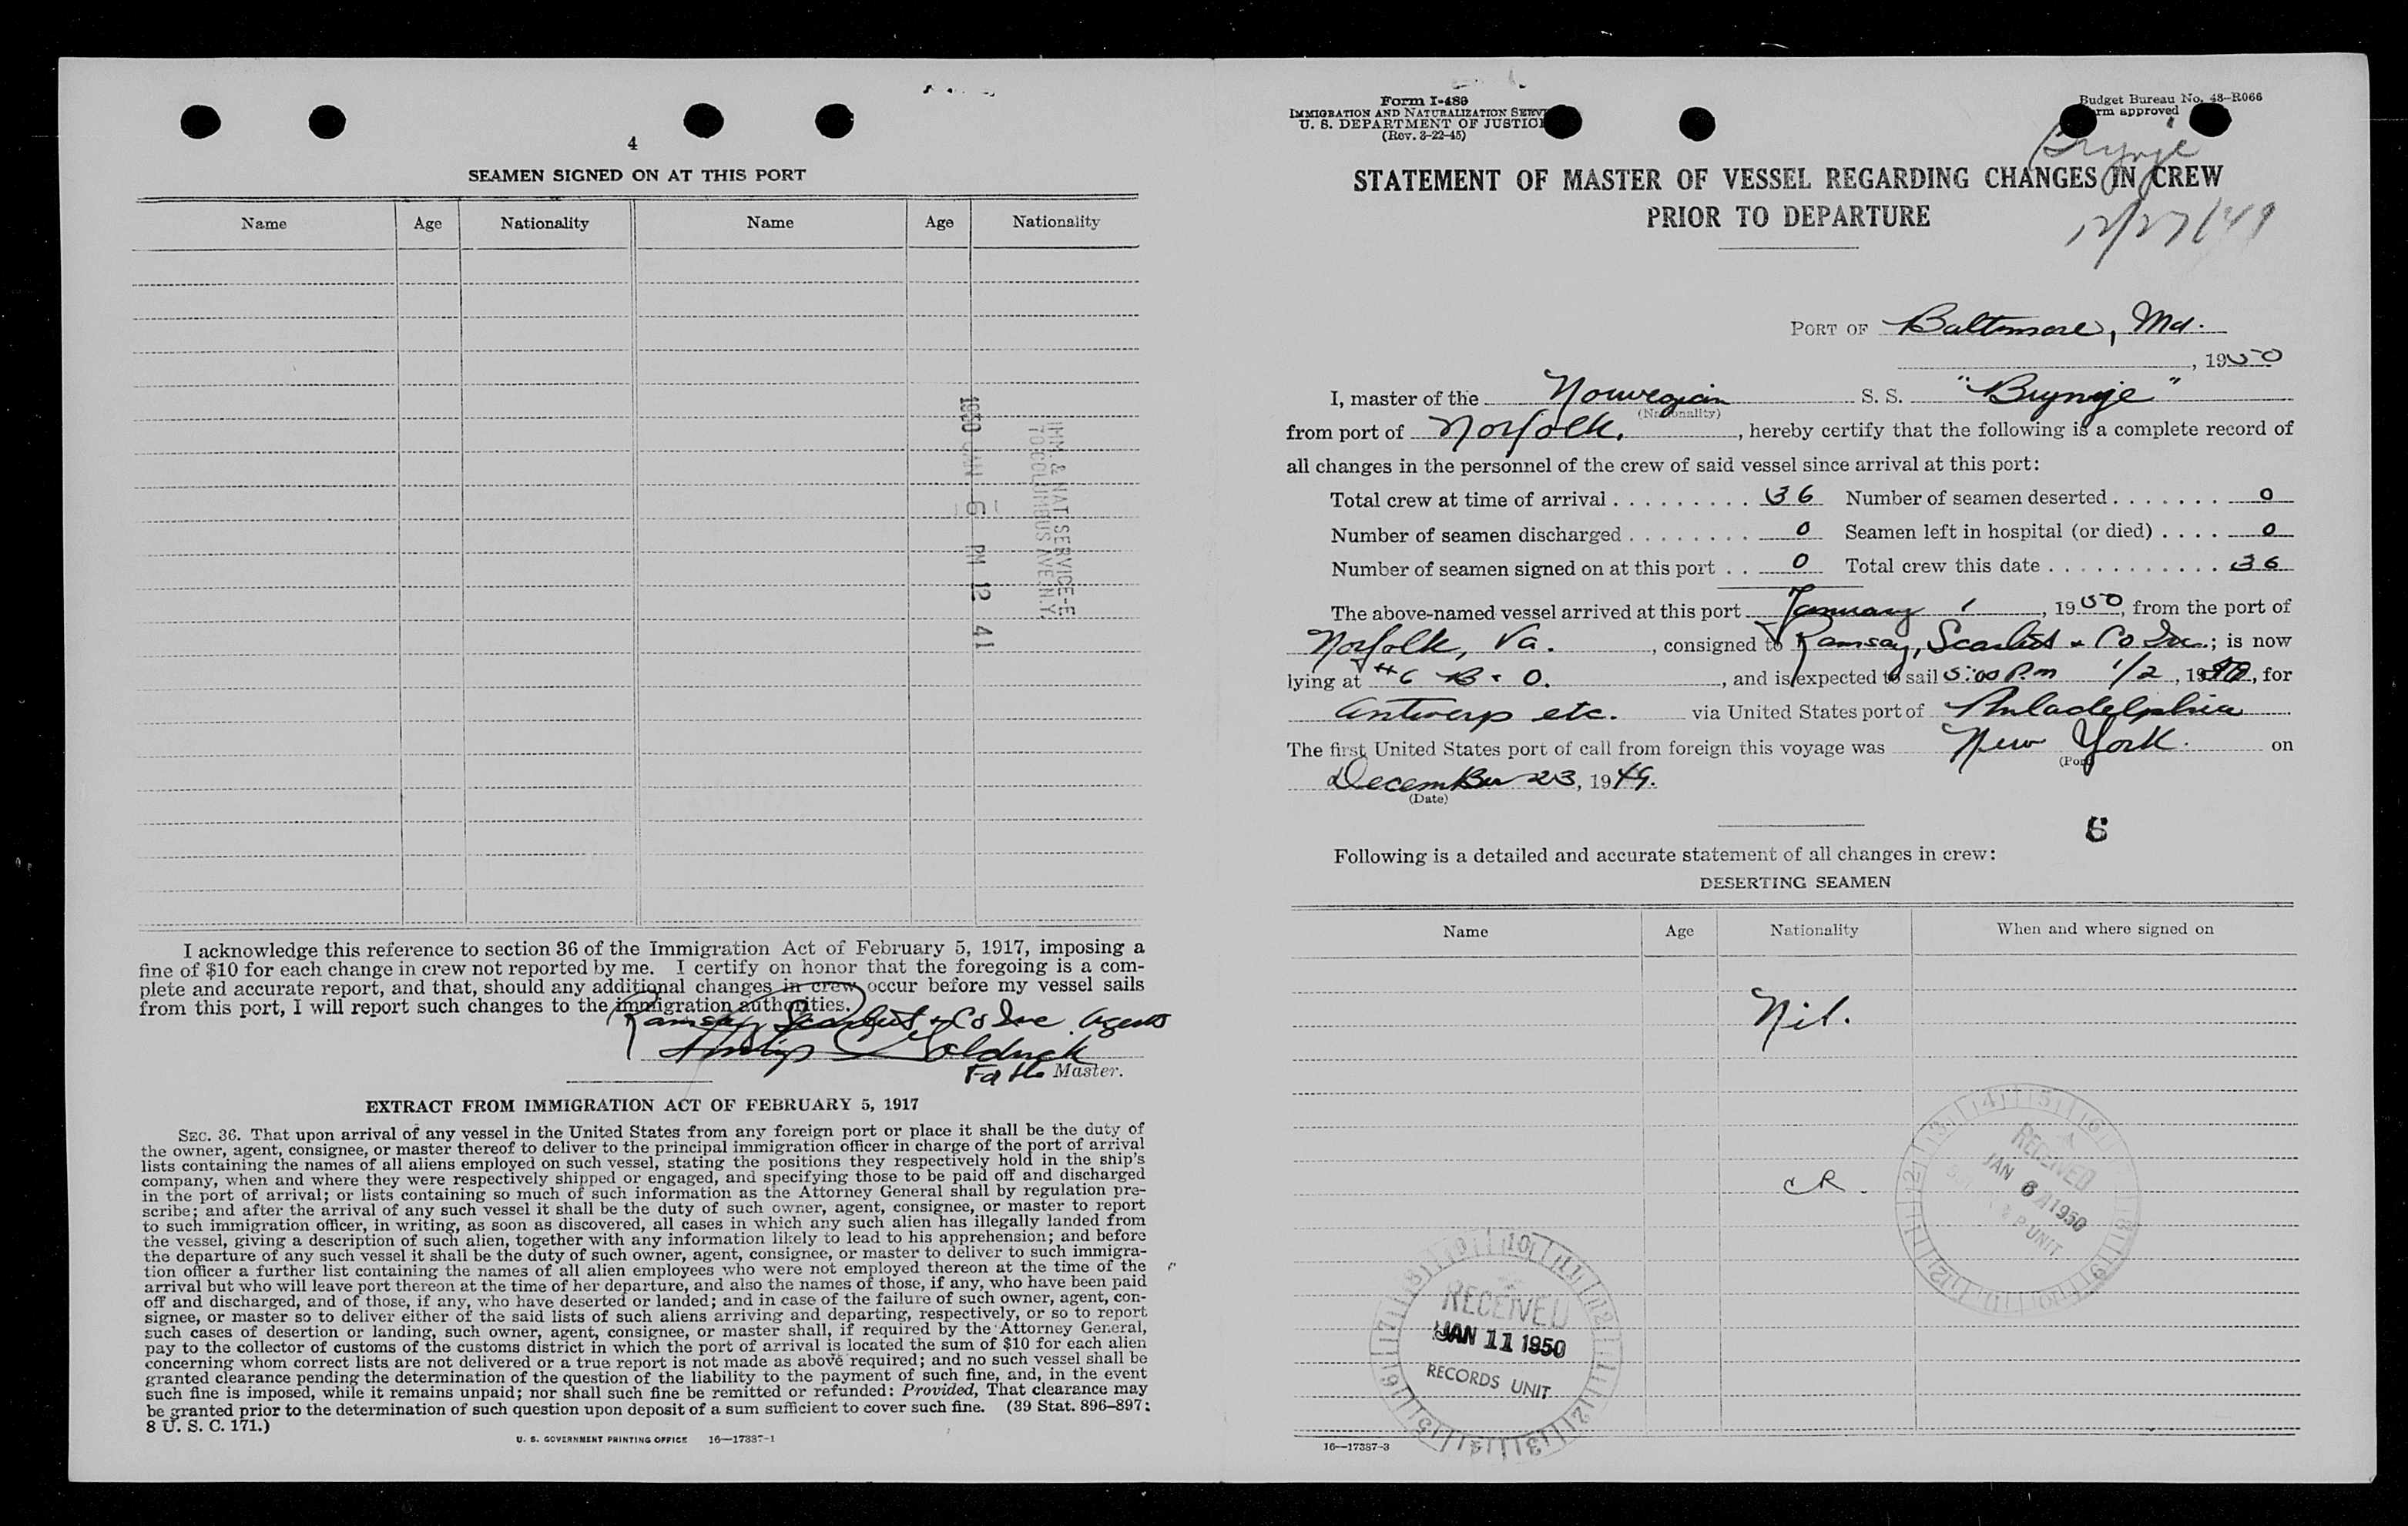 4
SEAMEN SIGNED ON AT THIS PORT
Name Age Nationality Name Age Nationality
IMM. & NAT. SERVICE-E
70 COLUMBUS AVE. N.Y.
1950 JAN 6 PM 12 41
I acknowledge this reference to section 36 of the Immigration Act of February 5, 1917, imposing a
fine of $10 for each change in crew not reported by me. I certify on honor that the foregoing is a com-
plete and accurate report, and that, should any additional changes in crew occur before my vessel sails
from this port, I will report such changes to the immigration authorities.
Ramsay, Scarlett & Co Inc. Agents
For the Master.
EXTRACT FROM IMMIGRATION ACT OF FEBRUARY 5, 1917
SEC. 36. That upon arrival of any vessel in the United States from any foreign port or place it shall be the duty of
the owner, agent, consignee, or master thereof to deliver to the principal immigration officer in charge of the port of arrival
lists containing the names of all aliens employed on such vessel, stating the positions they respectively hold in the ship's
company, when and where they were respectively shipped or engaged, and specifying those to be paid off and discharged
in the port of arrival; or lists containing so much of such information as the Attorney General shall by regulation pre-
scribe; and after the arrival of any such vessel it shall be the duty of such owner, agent, consignee, or master to report
to such immigration officer, in writing, as soon as discovered, all cases in which any such alien has illegally landed from
the vessel, giving a description of such alien, together with any information likely to lead to his apprehension; and before
the departure of any such vessel it shall be the duty of such owner, agent, consignee, or master to deliver to such immigra-
tion officer a further list containing the names of all alien employees who were not employed thereon at the time of the
arrival but who will leave port thereon at the time of her departure, and also the names of those, if any, who have been paid
off and discharged, and of those, if any, who have deserted or landed; and in case of the failure of such owner, agent, con-
signee, or master so to deliver either of the said lists of such aliens arriving and departing, respectively, or so to report
such cases of desertion or landing, such owner, agent, consignee, or master shall, if required by the Attorney General,
pay to the collector of customs of the customs district in which the port of arrival is located the sum of $10 for each alien
concerning whom correct lists are not delivered or a true report is not made as above required; and no such vessel shall be
granted clearance pending the determination of the question of the liability to the payment of such fine, and, in the event
such fine is imposed, while it remains unpaid; nor shall such fine be remitted or refunded: Provided, That clearance may
be granted prior to the determination of such question upon deposit of a sum sufficient to cover such fine. (39 Stat. 896–897;
8 U. S. C. 171.)
U. S. GOVERNMENT PRINTING OFFICE 16—17387-1
Form I-489
IMMIGRATION AND NATURALIZATION SERV
U. S. DEPARTMENT OF JUSTIC
(Rev. 3-22-45)
Budget Bureau No. 43-R066
rm approved
Brynje
12/27/49
STATEMENT OF MASTER OF VESSEL REGARDING CHANGES IN CREW
PRIOR TO DEPARTURE
PORT OF Baltimore, Md.
, 1950
I, master of the Norwegian S. S. "Brynje"
(Nationality)
from port of Norfolk, , hereby certify that the following is a complete record of
all changes in the personnel of the crew of said vessel since arrival at this port:
Total crew at time of arrival . . . . . . . . . . 36 Number of seamen deserted . . . . . . . 0
Number of seamen discharged . . . . . . . . 0 Seamen left in hospital (or died) . . . . 0
Number of seamen signed on at this port . . 0 Total crew this date . . . . . . . . . . . 36
The above-named vessel arrived at this port January 1, 1950, from the port of
Norfolk, Va. , consigned to Ramsay, Scarlett & Co Inc.; is now
lying at #6 B & O. , and is expected to sail 5:00 Pm 1/2, 1950, for
Antwerp etc. via United States port of Philadelphia
The first United States port of call from foreign this voyage was New York. on
(Port)
December 23, 1949.
(Date)
6
Following is a detailed and accurate statement of all changes in crew:
DESERTING SEAMEN
Name Age Nationality When and where signed on
Nil.
CR.
RECEIVED
JAN 6 1950
P UNIT
RECEIVED
JAN 11 1950
RECORDS UNIT
16—17387-3